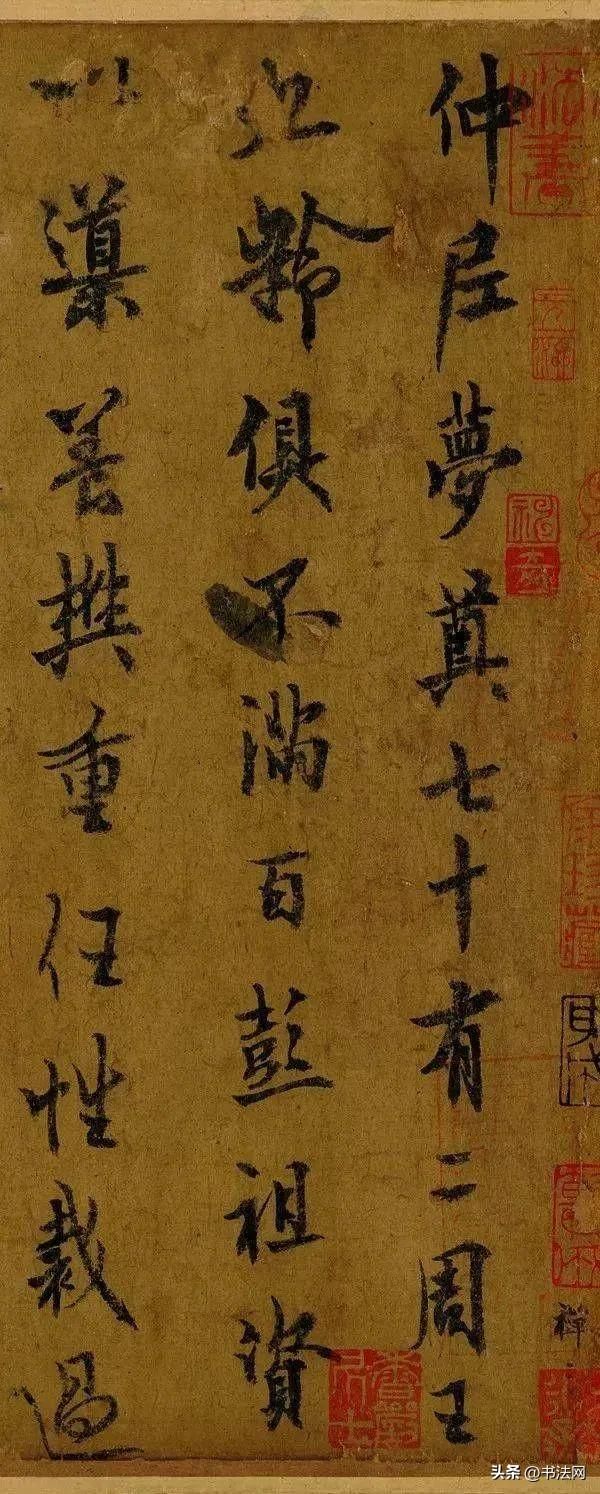 仲尼夢奠七十有二周王
九齡俱不滿百彭祖資
以導養樊重任性裁過
头条 @书法网